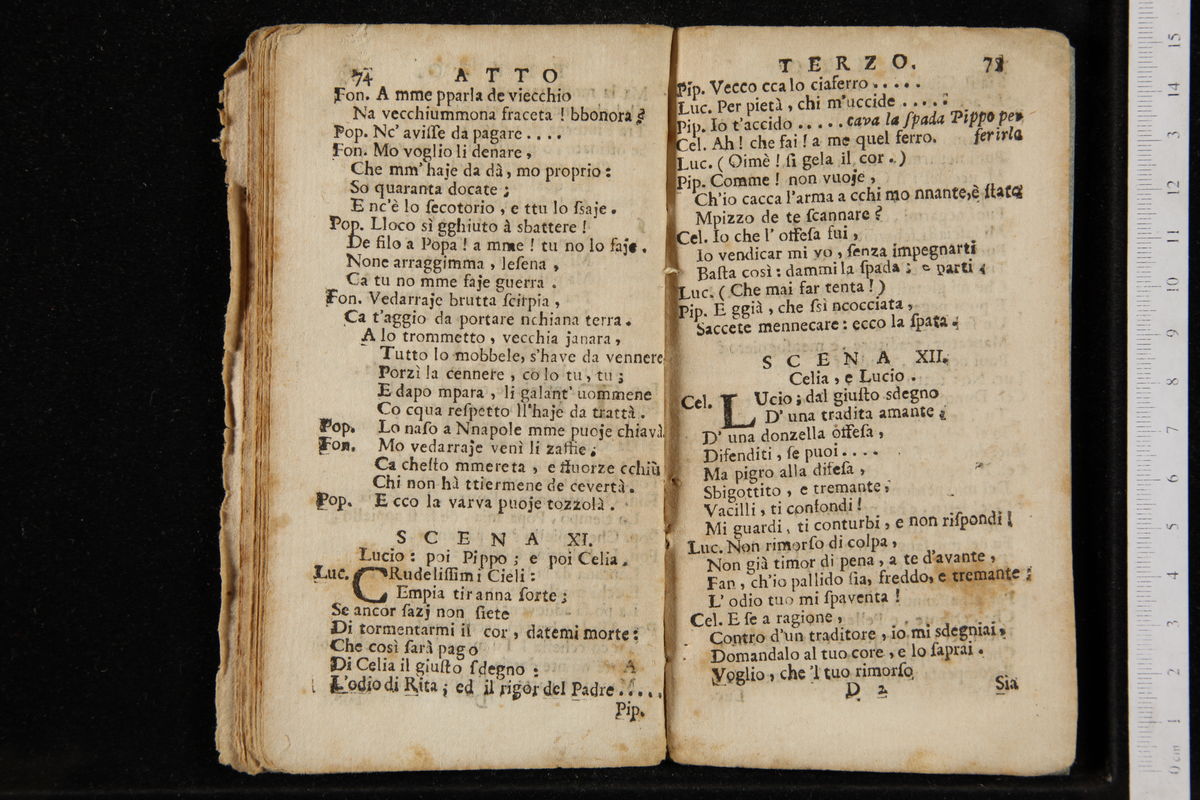 74 ATTO
Fon. A mme pparla de viecchio
Na vecchiummona fraceta ! bbonora ?
Pop. Nc' aviſſe da pagare . . . .
Fon. Mo voglio li denare ,
Che mm' haje da dà , mo proprio :
So quaranta docate ;
E nc'è lo ſecotorio , e ttu lo ſsaje .
Pop. Lloco sì gghiuto à sbattere !
De filo a Popa ! a mme ! tu no lo faje .
None arraggimma , leſena ,
Ca tu no mme faje guerra .
Fon. Vedarraje brutta ſcirpia ,
Ca t'aggio da portare nchiana terra .
A lo trommetto , vecchia janara ,
Tutto lo mobbele, s'have da vennere
Porzì la cennere , co lo tu , tu ;
E dapo mpara , li galant' uommene
Co cqua reſpetto ll'haje da trattà .
Pop. Lo naſo a Nnapole mme puoje chiavà
Fon. Mo vedarraje venì li zaffie ;
Ca cheſto mmereta , e ffuorze cchiù
Chi non hà ttiermene de cevertà .
Pop. E cco la varva puoje tozzolà .
SCENA XI.
Lucio : poi Pippo ; e poi Celia .
Luc. CRudeliſſimi Cieli :
Empia tiranna ſorte ;
Se ancor ſazj non ſiete
Di tormentarmi il cor , datemi morte :
Che così ſarà pago
Di Celia il giuſto ſdegno :
L'odio di Rita ; ed il rigor del Padre . . . . .
Pip.
TERZO. 75
Pip. Vecco cca lo ciaferro . . . . .
Luc. Per pietà , chi m'uccide . . . . :
Pip. Io t'accido . . . . . cava la ſpada Pippo per
Cel. Ah ! che fai ! a me quel ferro. ferirlo
Luc. ( Oimè ! ſi gela il cor . )
Pip. Comme ! non vuoje ,
Ch'io cacca l'arma a cchi mo nnante, è ſtato
Mpizzo de te ſcannare ?
Cel. Io che l' offeſa fui ,
Io vendicar mi vo , ſenza impegnarti
Baſta così : dammi la ſpada ; e parti .
Luc. ( Che mai far tenta ! )
Pip. E ggià , che ſsì ncocciata ,
Saccete mennecare : ecco la ſpata .
SCENA XII.
Celia , e Lucio .
Cel. LUcio ; dal giuſto sdegno
D' una tradita amante ,
D' una donzella offeſa ,
Difenditi , ſe puoi . . . .
Ma pigro alla difeſa ,
Sbigottito , e tremante ,
Vacilli , ti confondi !
Mi guardi , ti conturbi , e non riſpondi !
Luc. Non rimorſo di colpa ,
Non già timor di pena , a te d'avante ,
Fan , ch'io pallido ſia, freddo, e tremante ;
L' odio tuo mi ſpaventa !
Cel. E ſe a ragione ,
Contro d'un traditore , io mi sdegniai ,
Domandalo al tuo core , e lo ſaprai .
Voglio , che 'l tuo rimorſo
D 2 Sia
0 cm 1 2 3 4 5 6 7 8 9 10 11 12 13 14 15